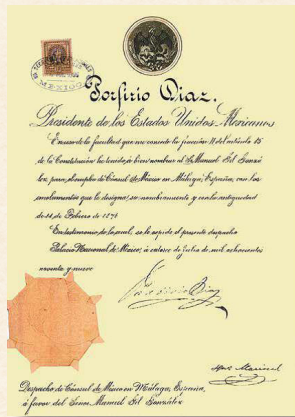 MEXICO
Porfirio Diaz.
Presidente de los Estados Unidos Mexicanos
En uso de la facultad que me concede la fracción II del artículo 85
de la Constitución ha tenido á bien nombrar al Sr. Manuel Gil Gonzá
lez para el empleo de Cónsul de México en Málaga, España, con los
emolumentos que le designa su nombramiento y con la antigüedad
de de Febrero de
En testimonio de lo cual, se le expide el presente despacho
Palacio Nacional de México, á catorce de Julio de mil ochocientos
noventa y nueve
Porfirio Diaz
Ignº Mariscal
Despacho de Cónsul de México en Málaga, España,
á favor del Señor Manuel Gil González